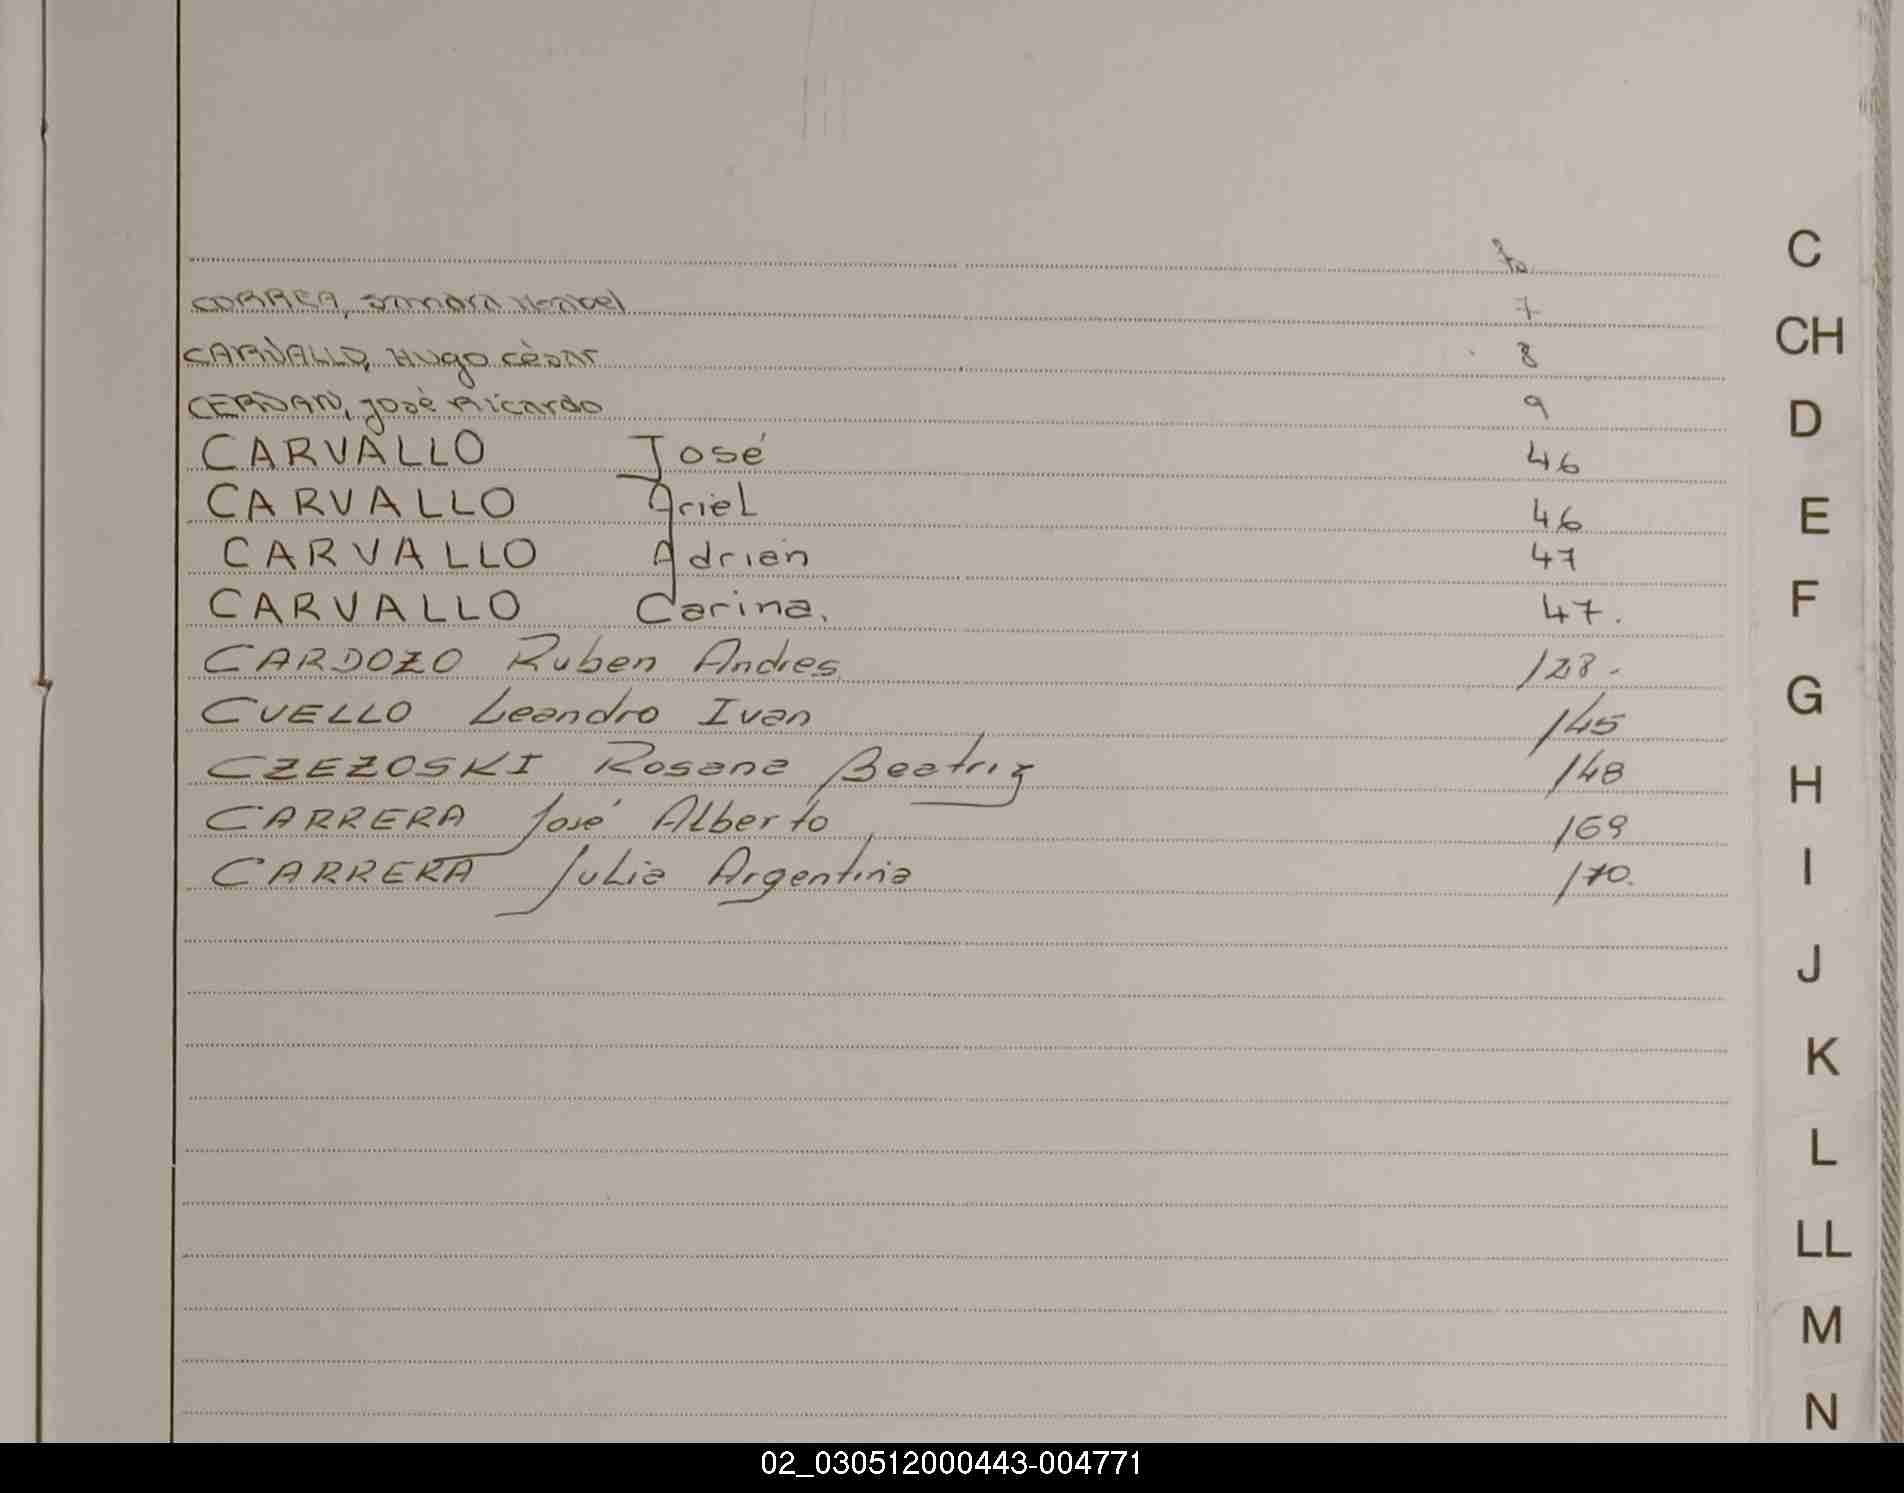 fo C
CORREA, Sandra Isabel 7
CARVALLO, Hugo Cèsar 8
CH
CERDAN, José Ricardo 9
D
CARVALLO José 46
CARVALLO Ariel 46
E
CARVALLO Adrian 47
CARVALLO Carina. 47.
F
CARDOZO Ruben Andres 128.
G
CUELLO Leandro Ivan 145
CZEZOSKI Rosana Beatriz 148
H
CARRERA José Alberto 169
CARRERA Julia Argentina 170.
I
J
K
L
LL
M
N
02_030512000443-004771